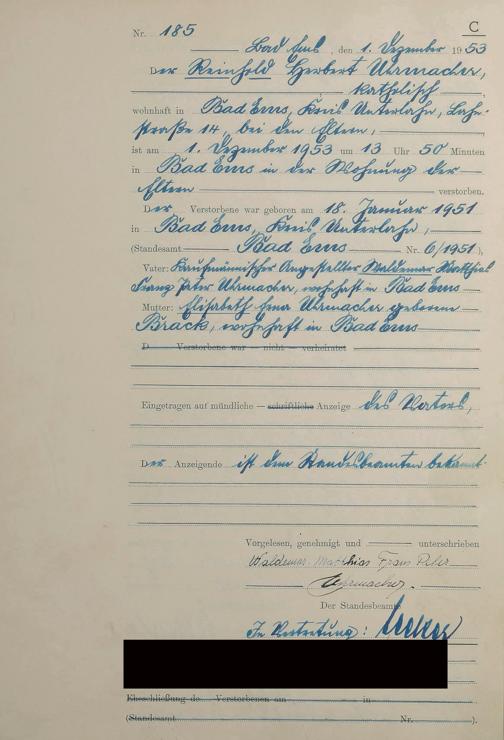 C
Nr. 185
Bad Ems, den 1. Dezember 1953
Der Reinhold Herbert Uhrmacher,
katholisch,
wohnhaft in Bad Ems, Kreis Unterlahn, Lahn-
straße 14, bei den Eltern,
ist am 1. Dezember 1953 um 13 Uhr 50 Minuten
in Bad Ems in der Wohnung der
Eltern verstorben.
Der Verstorbene war geboren am 18. Januar 1951
in Bad Ems, Kreis Unterlahn,
(Standesamt Bad Ems Nr. 6/1951),
Vater: Kaufmännischer Angestellter Waldemar Matthias
Franz Peter Uhrmacher, wohnhaft in Bad Ems
Mutter: Elisabeth Erna Uhrmacher geborene
Brack, wohnhaft in Bad Ems
D Verstorbene war — nicht — verheiratet
Eingetragen auf mündliche — schriftliche Anzeige des Vaters,
Der Anzeigende ist dem Standesbeamten bekannt.
Vorgelesen, genehmigt und unterschrieben
Waldemar Matthias Franz Peter
Uhrmacher.
Der Standesbeamte
In Vertretung:
Eheschließung de Verstorbenen am in
(Standesamt Nr. )